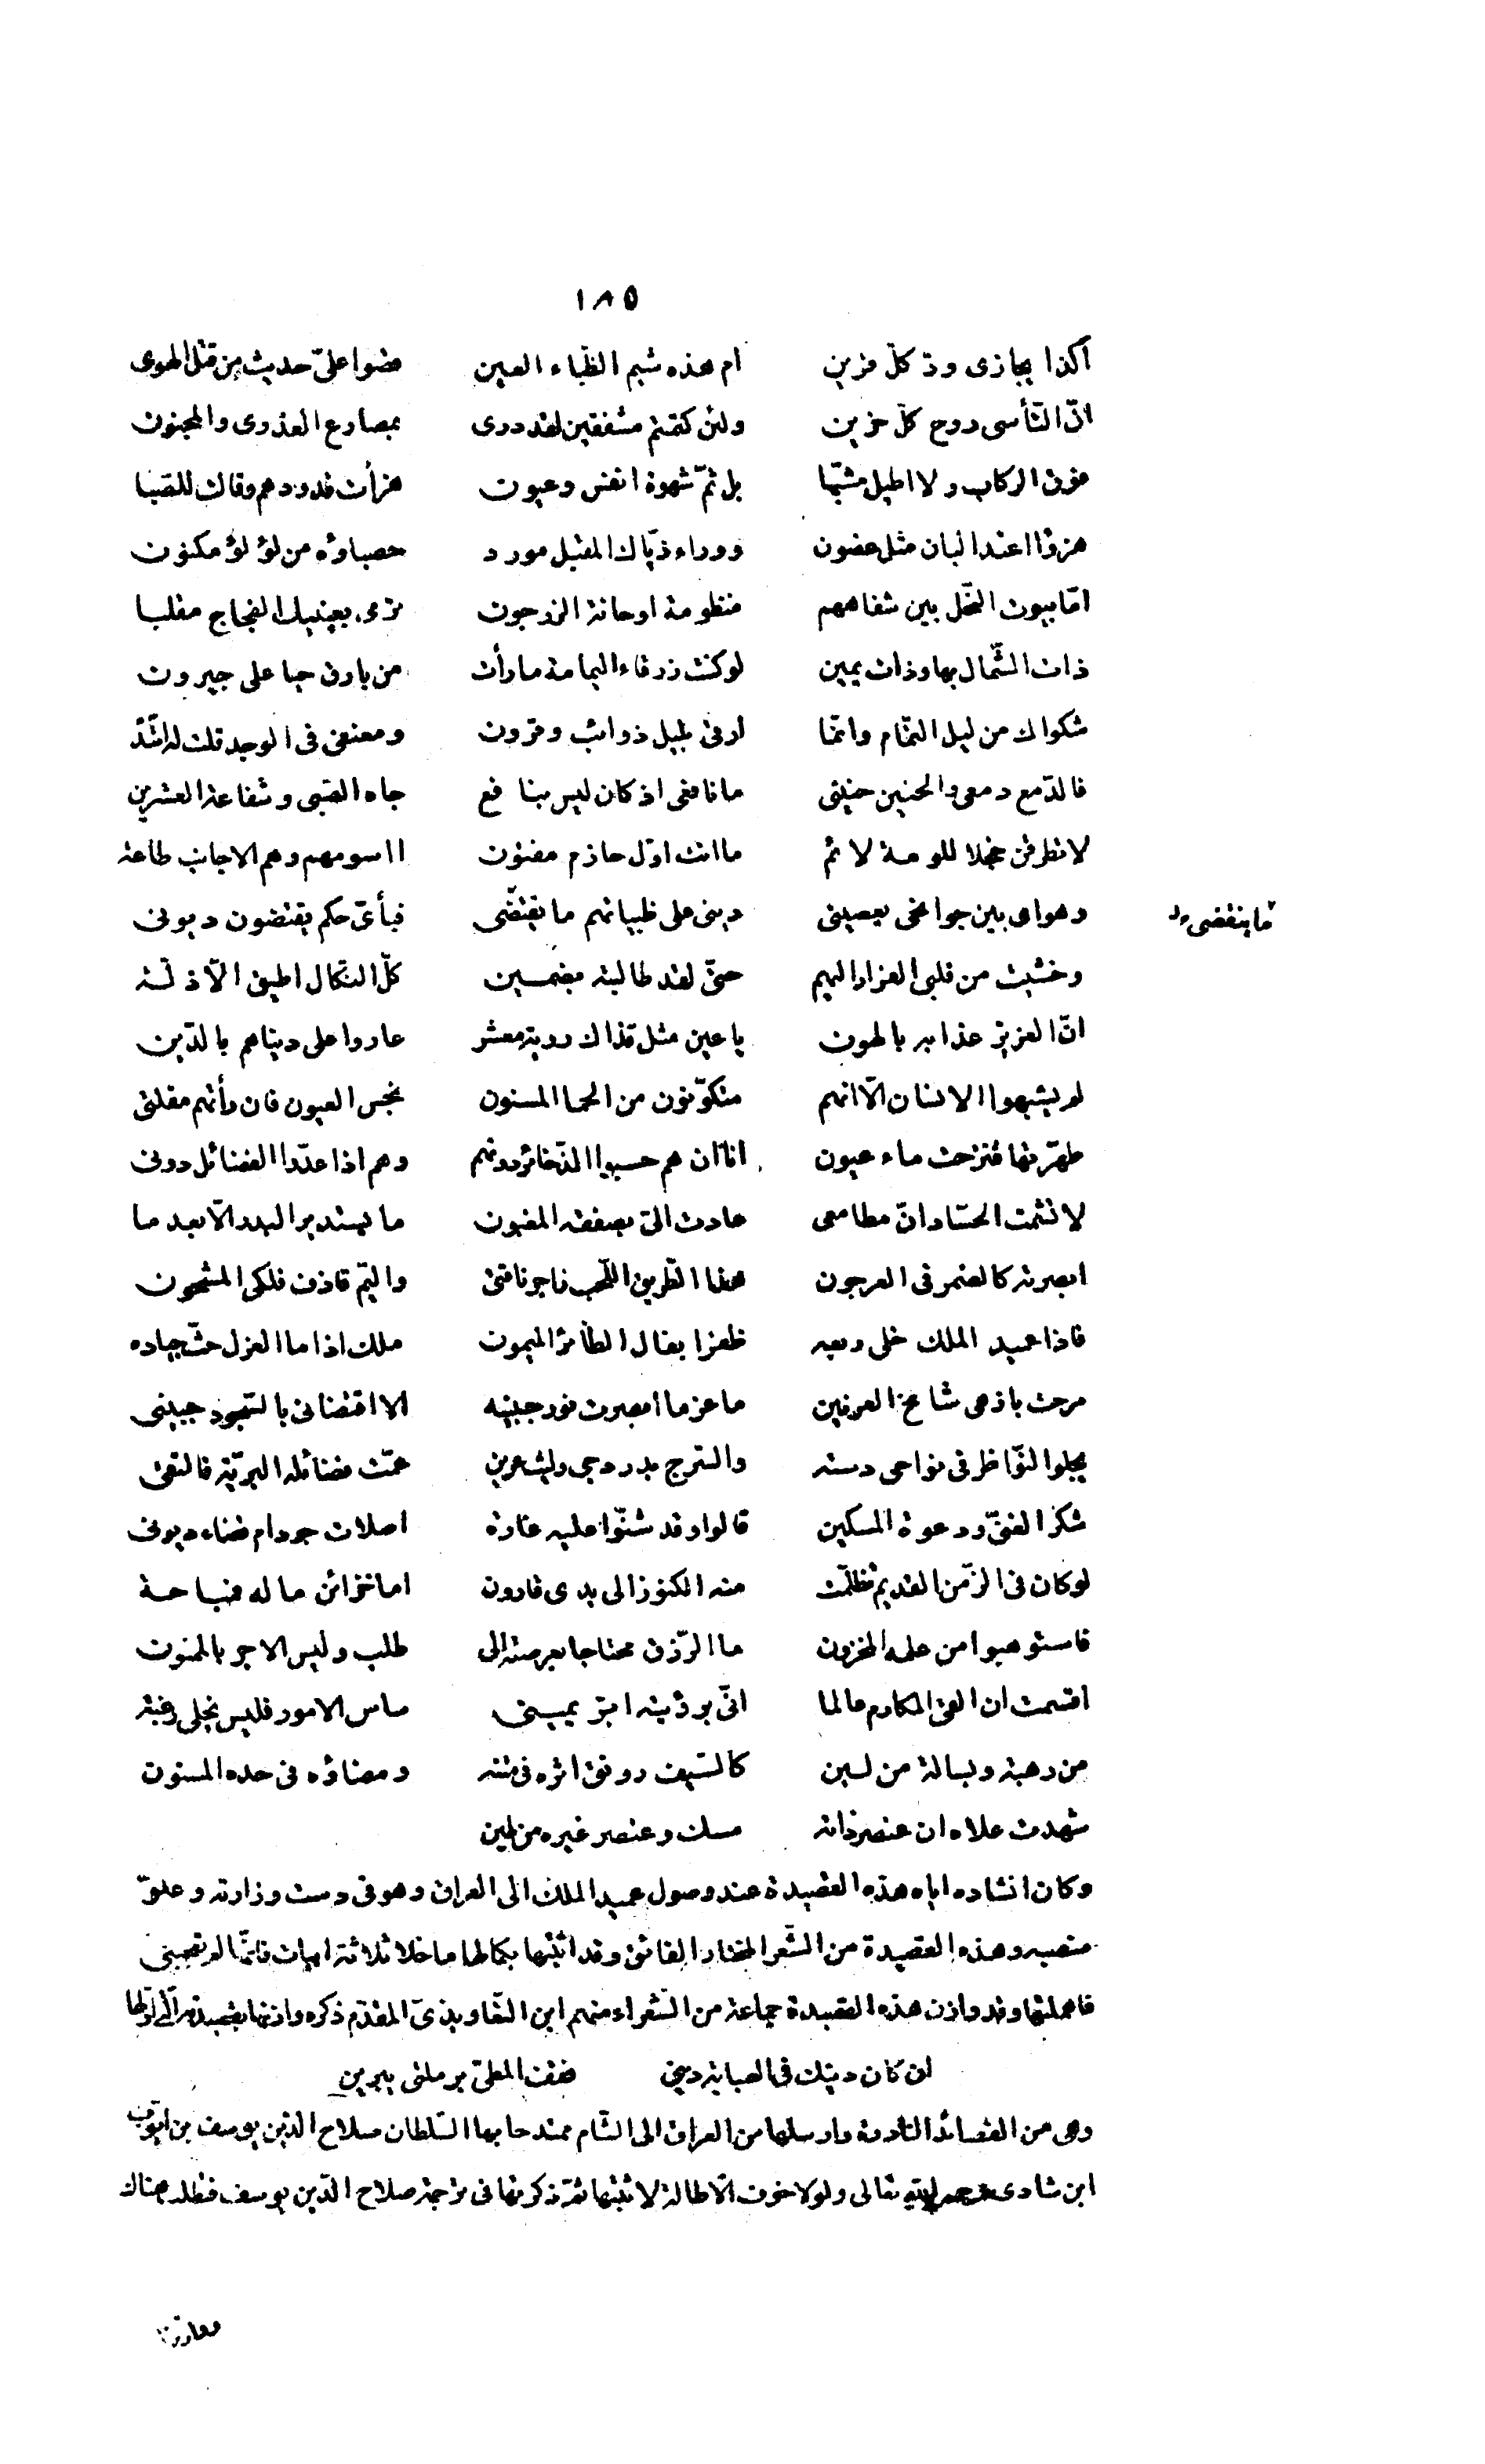 ١٨٥
أكذا يجازى ودّ كلّ قرين ام هذه شيم الظّباء العين قضوا علىّ حديث من قتل الهوى
انّ التّأسى روح كلّ حزين ولئن كتمتم مشفقين لقد درى بمصارع العذرى والمجنون
فوق الركاب ولا اطيل مشبّها بل ثمّ شهوة انفس وعيون هزأت قدودهم وقالت للصّبا
هزؤا اعند البان مثل غصون ووراء ذيّاك المقبل مورد حصباؤه من لؤلؤ مكنون
امّا بيوت النّحل بين شفاههم منظومة او حانة الزرجون ترمى بعينيك الفجاج مقلبا
ذات الشّمال بها وذات يمين لو كنت زرقاء اليمامة ما رأت من بارق حيا على جيرون
شكواك من ليل التمّام وانّما ارقى بليل ذوائب وقرون ومعنفى فى الوجد قلت له اتّئد
فالدّمع دمعى والحنين حنينى ما نافعى اذ كان ليس بنافع جاه الصّبى وشفاعة العشرين
لا تطرقن خجلا للومة لائم ما انت اوّل حازم مفتون ااسومهم وهم الاجانب طاعة
وهواى بين جوانحى يعصينى دينى على ظبياتهم ما يقتضّى فبأىّ حكم يقتضون ديونى
ما ينقضى
وخشيت من قلبى الفرار اليهم حتّى لقد طالبته بضمين كلّ النكال اطيق الّا ذلّة
انّ العزيز عذابه بالهون يا عين مثل قذاك رؤية معشر عاروا على دنياهم بالدّين
لم يشبهوا الانسان الّا انهم متكوّنون من الحمأ المسنون نجس العيون فان رأتهم مقلتى
طهّرتها فنزحت ماء عيون انا ان هم حسبوا الذّخائر دونهم وهم اذا عدّوا الفضائل دونى
لا تشمت الحسّاد انّ مطامعى عادت الىّ بصفقة المغبون ما يستدير البدر الّا بعد ما
ابصرته كالضمر فى العرجون هذا الطّريق اللّحب ناجو ناقتى واليمّ قاذف فلكى المشحون
فاذا عميد الملك خلى ربعه ظفرا بفال الطّائر الميمون ملك اذا ما العزل حثّ جياده
مرحت بازهى شامخ العرنين ما عز ما ابصرت نور جبينه الا اقتضانى بالسّجود جبينى
يجلوا لنّواظر فى نواحى دسته والسّرج بدر دجى وليث عرين عمّت فضائله البريّة فالتقى
شكر الغنىّ ودعوة المسكين قالوا وقد شنّوا عليه غارة اصلات جود ام قضاء ديون
لو كان فى الزّمن القديم تظلّمت منه الكنوز الى يدى قارون اما خزائن ماله فمباحة
فاستوهبوا من علمه المخزون ما الرّزق محتاجا بعرصته الى طلب وليس الاجر بالممنون
اقسمت ان القى المكارم عالما انّى برؤيته ابرّ يمينى ساس الامور فليس يخلى رغبة
من رهبة وبسالة من لين كالسّيف رونق اثره فى متنه ومضاؤه فى حده المسنون
شهدت علاه ان عنصر ذاته مسك وعنصر غيره من طين
وكان انشاده اياه هذه القصيدة عند وصول عميد الملك الى العراق وهو فى دست وزارته وعلوّ
منصبه وهذه القصيدة من الشّعر المختار الفائق وقد اثبتها بكمالها ما خلا ثلاثة ابيات فانّها لم تعجبنى
فاهملتها وقد وازن هذه القصيدة جماعة من الشّعراء منهم ابن التّعاويذىّ المقدّم ذكره وازنها بقصيدته الّتى اوّلها
ان كان دينك فى الصبابة دينى فقف المطىّ برملتى يبرين
وهى من القصائد النادرة وارسلها من العراق الى الشّام ممتدحا بها السّلطان صلاح الدّين يوسف بن ايّوب
ابن شادى رحمه الله تعالى ولولا خوف الاطالة لاثبتها ثمّ ذكرتها فى ترجمة صلاح الدّين يوسف فتطلب هناك